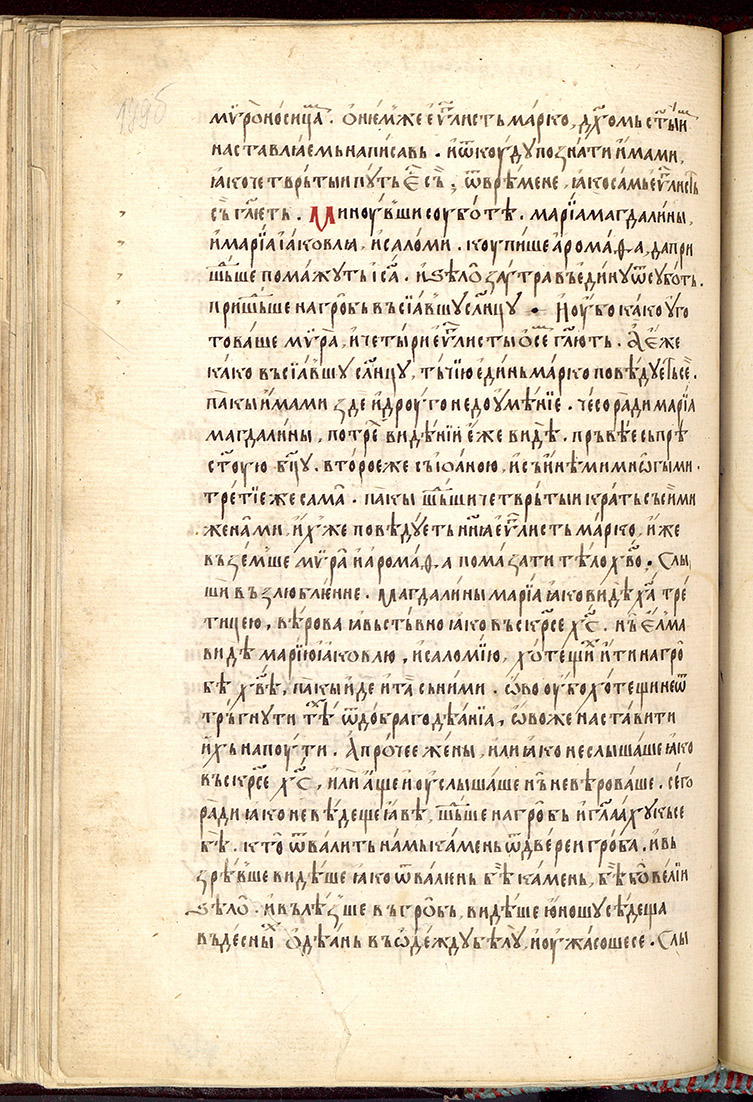 мѵ̈роносица. ѻ҆ ниⷯмже еѵⷢ҇листь марко, дх҃омь ст҃ыⷨи
наставлꙗемь написавь. и҆ ѿкоудꙋ познати и҆мами,
ꙗко четврътыи путь е҆ съ̀, ѿ врѣмене, ꙗко самь еѵⷢ҇листь
съ гл҃ють. Минꙋв̾ши соуботѣ. марїа магдалины,
и҆ марїа і҆аковлꙗ, и҆ саломи. коупише арома́ѳа, да при
шⷣьше помажуть і҆са. и҆ ѕѣлѡ̀ заутра въ единꙋ ѿ суботь.
пришⷣьше на гробь въсїав̾шу слн҃цꙋ · И҆ оубо како уго
товаше мѵ̈ра̀, и҆ четыри еѵⷢ҇листы ѻ҆ се гл҃ють. А҆ е҆же
како въсїав̾шу слн҃цꙋ, тъчїю единь марко повѣдуеть се.
пакы и҆мами зде и҆ дроуго недоумѣнїе. чесо ради марїа
магдалины, потреⷠ҇ видѣнїи е҆же видѣ. пръвѣе съ прѣ
ст҃ою бц҃у. второе же съ іѡ҆аною, и҆ съ и҆нѣми мнѡгыми.
третїе же сама̀. пакы шⷣьши четврътыи крать съ семи
женами, и҆х̾же повѣдуеть нн҃ꙗ еѵⷢ҇листь марко, и҆же
възем̾ше мѵ̈ра̀ и҆ арома́ѳа помазати тѣло хв҃о. Слы
ши възлюблѥнне. магдалины марїа ꙗко видѣ ха҃ тре
тицею, вѣрова ꙗвьствно ꙗко въскрⷭ҇се хс҃. нъ̀ е҆лма
видѣ марїю і҆аковлю, и҆ саломїю, хотещиⷯ и҆ти на гро
бѣ хв҃ѣ, пакы иде и҆ та̀ съ ними. ѡ҆во оубо хотещи не ѿ
тръгнути теⷯ ѿ добрагодѣанїа, ѡ҆воже наставити
и҆хь на поути. А҆ прочее жены, или ꙗко не слышаше ꙗко
въскрⷭ҇се хс҃, и҆ли аще и҆ оуслышаше нь̀ не вѣроваше. сего
ради ꙗко не вѣдеще ꙗвѣ, шⷣьше на гробь и҆ гл҃аахꙋ кь се
бѣ. кто̀ ѿвалить намь камень ѿ двереи гроба. и҆ въ
зрѣв̾ше видѣше ꙗко ѿвалѥнь бѣ̀ камень, бѣ̀ бо велїи
ѕѣлѡ̀. и҆ вълѣз̾ше въ гробь, видѣше ю҆ношу сѣдеща
въ десныⷯ ѻ҆дѣань въ ѡ҆деждꙋ бѣлꙋ, и҆ оужасошесе. Слы